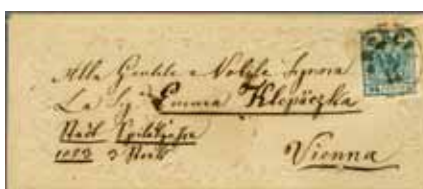 Alla Gentile e Nobile Signora
La Sig. Emma Klopaczka
Stadt
1083 3 Stock
Vienna